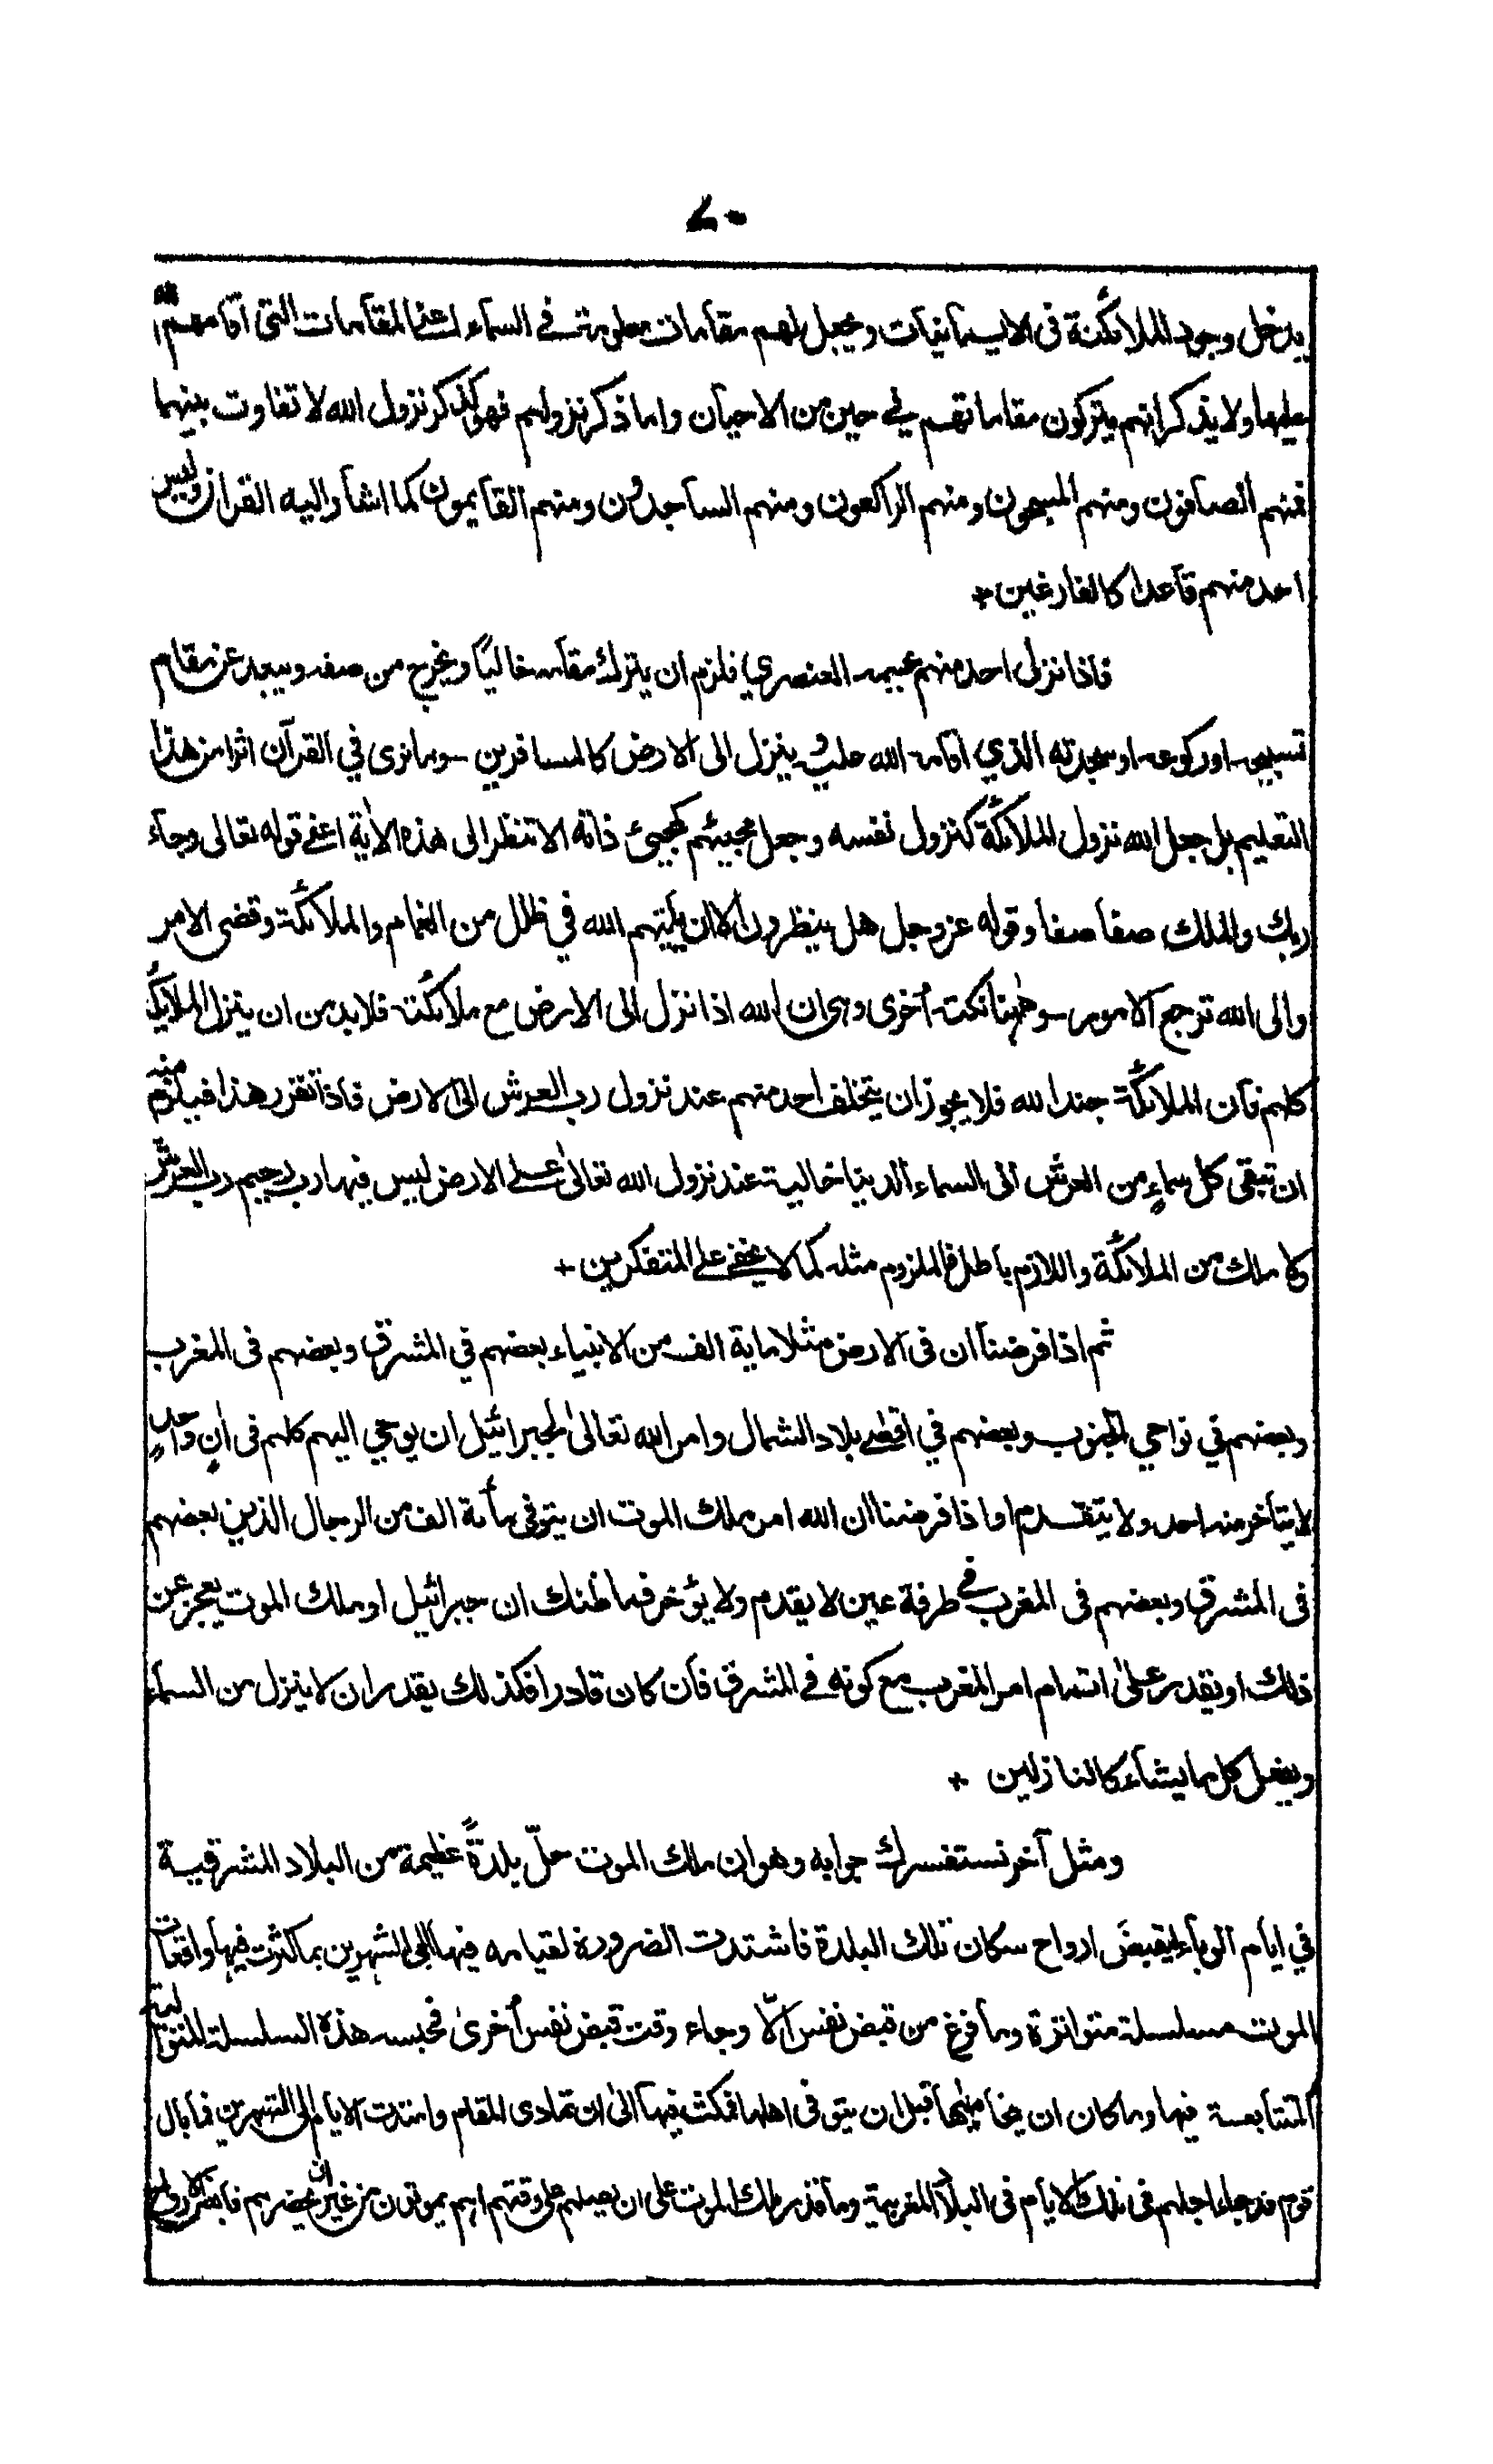 ٧٠
يدخل وجود الملائكة فى الايمانيات ويجعل لهم مقامات معلومة فے السماء اعنے المقامات التى اقامهم الله
عليها ولا يذكر انهم يتركون مقاماتهم فے حين من الاحيان واما ذكر نزولهم فهو كذكر نزول الله لا تفاوت بينهما
فمنهم الصافون ومنهم المسبحون ومنهم الراكعون ومنهم الساجدون ومنهم القايمون كما اشار اليه القران وليس
احد منهم قاعدا كالفارغين +
فاذا نزل احد منهم بجسمه العنصري فلزم ان يترك مقامه خاليًا ويخرج من صفه ويبعد عن مقام
تسبيحه او ركوعه او سجدته الذي اقامه الله عليه وينزل الى الارض كالمسافرين وما نرى في القرآن اثرا من هذا
التعليم بل جعل الله نزول الملائكة كنزول نفسه وجعل مجيئهم كمجيئ ذاته الا تنظر الى هذه الاٰية اعنے قوله تعالى وجاء
ربك والملك صفا صفا وقوله عز وجل هل ينظرون الا ان ياتيهم الله في ظلل من الغمام والملائكة وقضى الامر
والى الله ترجع الامور وهٰهنا نكتة اُخرى وهى ان الله اذا نزل الى الارض مع ملائكته فلا بد من ان ينزل الملايكة
كلهم فان الملائكة جند الله فلا يجوز ان يتخلف احد منهم عند نزول رب العرش الى الارض فاذا تقرر هذا فيلزم منه
ان تبقى كل سماءٍ من العرش الى السماء الدنيا خالية عند نزول الله تعالىٰ علے الارض ليس فيها رب رحيم رب العرش
ولا ملك من الملائكة واللازم باطل فالملزوم مثله كما لا يخفے علے المتفكرين +
ثم اذا فرضنا ان فى الارض مثلا ماية الف من الانبياء بعضهم في المشرق وبعضهم فى المغرب
وبعضهم في نواحي الجنوب وبعضهم في اقصے بلاد الشمال وامر الله تعالىٰ لجبرائيل ان يوحي اليهم كلهم فى اٰنٍ واحدٍ
لا يتأخر منه احد ولا يتقدم او اذا فرضنا ان الله امر ملك الموت ان يتوفى مأئة الف من الرجال الذين بعضهم
فى المشرق وبعضهم فى المغرب فے طرفة عين لا يقدم ولا يؤخر فما ظنك ان جبرائيل او ملك الموت يعجز عن
ذلك او يقدر علىٰ اتمام امر المغرب مع كونه فے المشرق فان كان قادرا فكذلك يقدر ان لا ينزل من السماء
ويفعل كل ما يشاء كالنازلين +
ومثل آخر نستفسرك جوابه وهو ان ملك الموت حلّ بلدةً عظيمة من البلاد المشرقية
في ايام الوباء ليقبض ارواح سكان تلك البلدة فاشتدت الضرورة لقيامه فيها الى الشهرين بما كثرت فيها واقعات
الموت مسلسلة متواترة وما فرغ من قبض نفس الّا وجاء وقت قبض نفس اُخرىٰ فحبسه هذه السلسلة المتوالية
المتتابعة فيها وما كان ان يخامنها قبل ان يتوفى اهلها فمكث فيها الىٰ ان تمادى المقام وامتدت الايام الى الشهرين فما بال
قوم قد جاء اجلهم فى تلك الايام فى البلاد المغربية وما قدر ملك الموت على ان يصلهم على وقتهم اهم يموتون من غير ان يحضرهم قابض الارواح